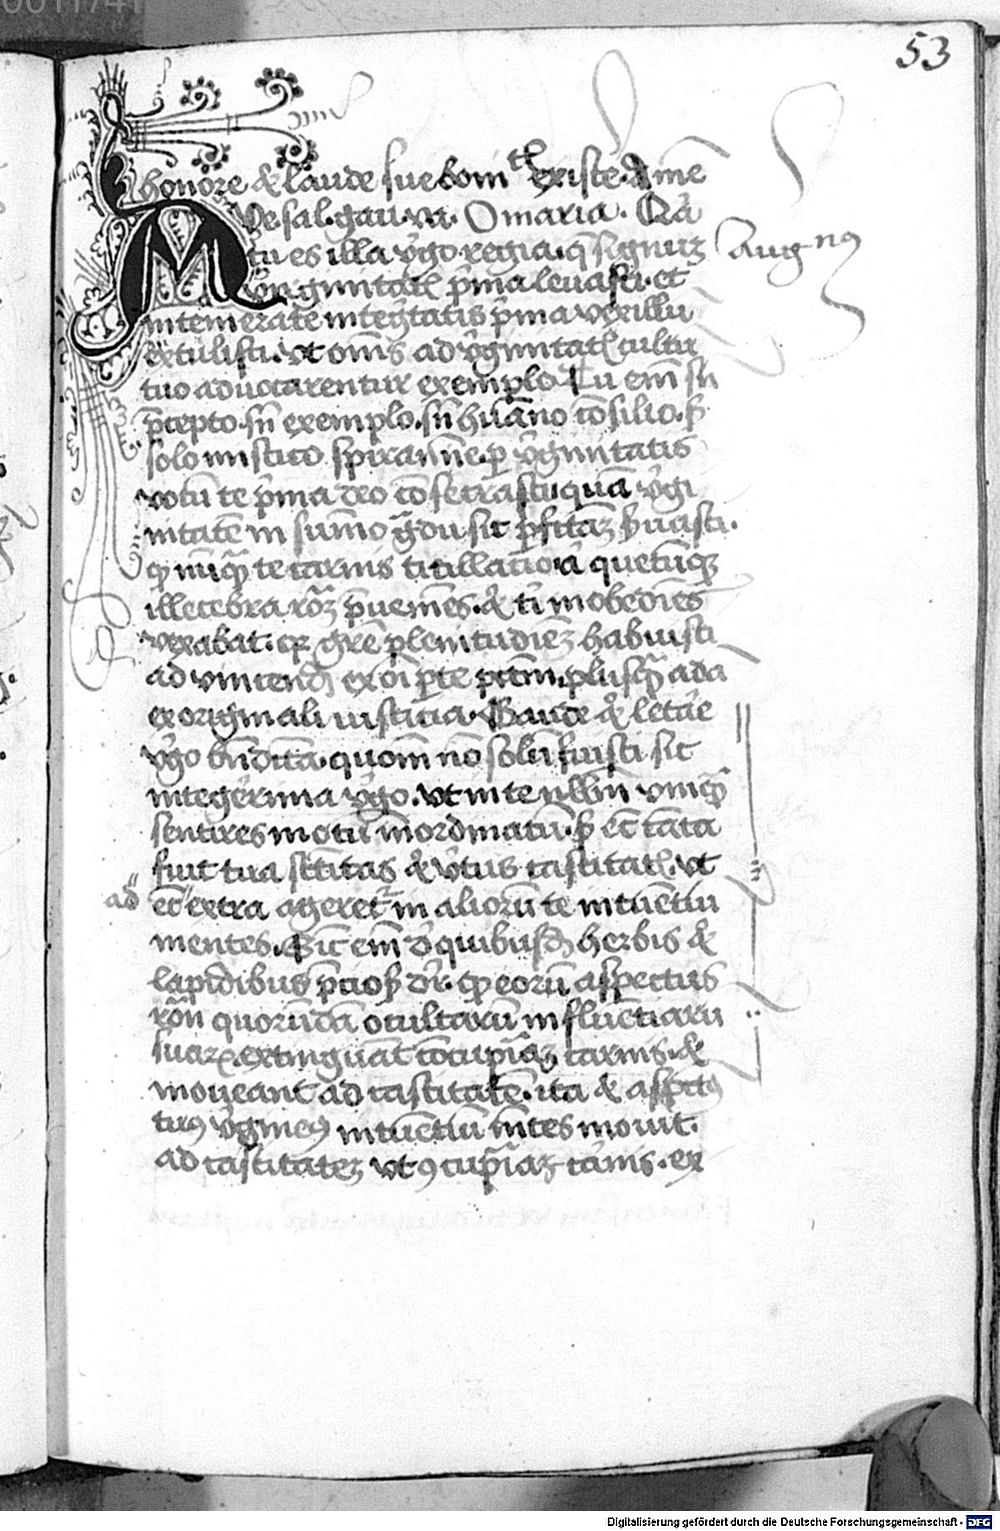 53
honore & laude sue bonitatꝭ existe. Amē
Ve sal. gau. vi. O maria. Qꝛ
tu es illa v̄go regia. q̄ signuʒ
v̄gīnitatꝭ p̄ma leuasti. et
intemerate inteḡtatis p̄ma vexillū
extulisti. vt om̄s ad v̄ginitatꝭ cultū
tuo aduocarentur exemplo. Tu em̄ sn̄
p̄cepto. sn̄ exemplo. sn̄ hūano cōsilio. sꝫ
solo mistico spiramīe. ꝑ v̄ginitatis
votū te p̄ma deo cōsecrasti. quā v̄gi
nitatē in sum̄o g̈du sic ꝑfctāʒ ẜuasti.
ꝙ nūqͣ te carnis titillatio. aꝉ quecūqʒ
illecebra
vexabat. qꝛ gr̄e plenitudīeʒ habuisti
ad vincendū ex oī ꝑte plusqͣ̄ adā
ex originali iusticia. Gaude & letare
v̄go bn̄dicta. quom̄ nō solū fuisti sic
inteḡrima v̄go. vt in te nullū vnqͣ̄
sentires motū īordinatū. sꝫ ec̄ tāta
fuit tua sc̄titas & v̄tus castitatꝭ. vt
ad ec̄ extra ageret̄ in aliorū te intuētiū
mentes. Sic em̄ d̄ quibusdā herbis &
lapidibus p̄ciosꝭ dr̄. ꝙ eorū aspectus
rōn quorūdā ocultarū influētiarū
suarꝝ. extinguāt cōcupīaʒ carnis. &
moueant ad castitatē. ita & aspectꝰ
tuꝰ v̄gineꝰ intuētiū m̄tes mouit.
ad castitateʒ vt ꝯcupīaʒ carnis. ex
Augnꝰ
Digitalisierung gefördert durch die Deutsche Forschungsgemeinschaft - DFG